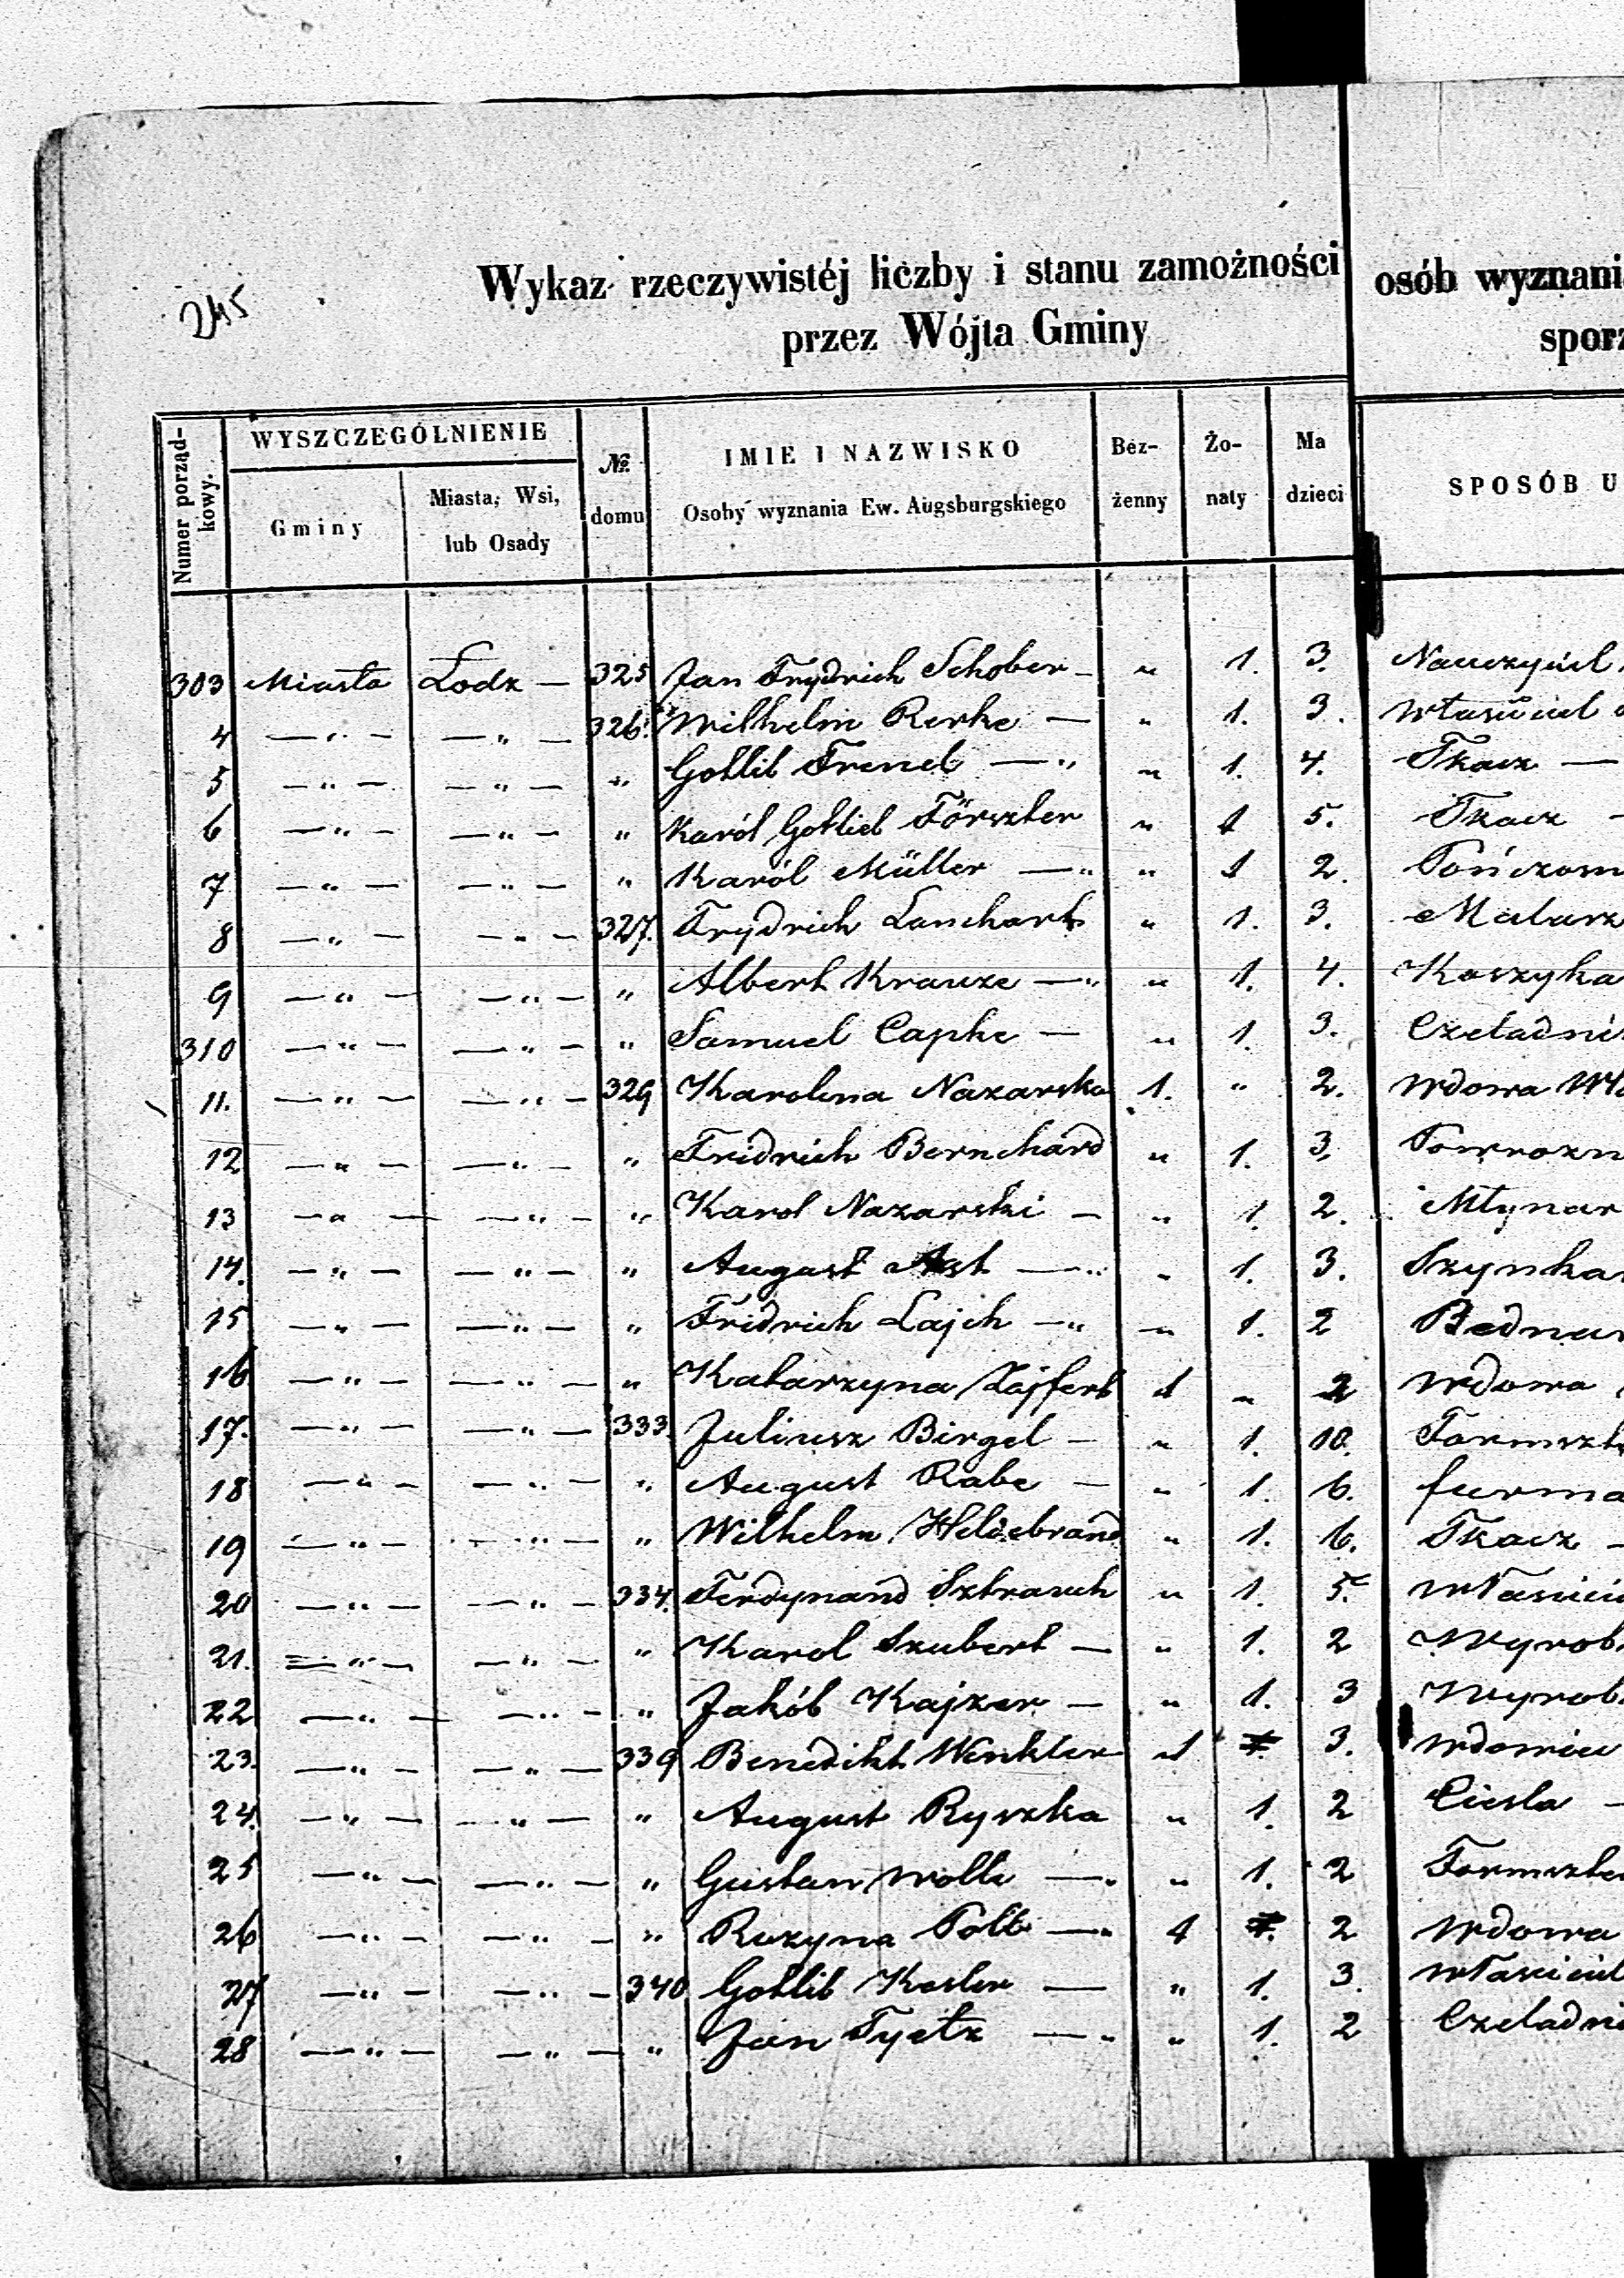 245
Wykaz rzeczywistéj liczby i stanu zamożności osób wyznani
przez Wójta Gminy sporz
Numer porząd-kowy. WYSZCZEGÓLNIENIE № domu IMIE I NAZWISKO Bez-żenny Żo-naty Ma dzieci SPOSÓB U
Gminy Miasta, Wsi, lub Osady Osoby wyznania Ew. Augsburgskiego
303 Miasta Łodz — 325 Jan Frydrich Schober — " 1. 3. Nauczyciel
4 — " — — " — 326. Wilhelm Rerke — " 1. 3. własciciel
5 — " — — " — " Gotlib Frenel — " " 1. 4. Tkacz —
6 — " — — " — " Karól Gotlieb Förszter " 1 5. Tkacz —
7 — " — — " — " Karól Müller — " " 1 2. Pończosz
8 — " — — " — 327. Frydrich Lanchart " 1. 3. Malarz
9 — " — — " — " Albert Krauze — " " 1. 4. Koszyka
310 — " — — " — " Samuel Capke — " 1. 3. Czeladni
11. — " — — " — 329 Karolina Nazarska 1. " 2. wdowa Wł
12 — " — — " — " Fridrich Bernchard " 1. 3. Powrozn
13 — " — — " — " Karol Nazarski — " 1. 2. Młynar
14. — " — — " — " August Ast — " " 1. 3. Szynkar
15 — " — — " — " Fridrich Lajch — " " 1. 2 Bednar
16 — " — — " — " Katarzyna Zajfert 1 " 2 wdowa
17. — " — — " — 333. Juliusz Birgel — " 1. 10. Formszt
18 — " — — " — " August Rabe — " 1. 6. furma
19 — " — — " — " Wilhelm Heldebrand " 1. 6. Tkacz —
20 — " — — " — 334. Ferdynand Sztrauch " 1. 5. własici
21. — " — — " — " Karol Szubert — " 1. 2 Wyrob
22 — " — — " — " Jakób Kajzer — " 1. 3 Wyrob
23. — " — — " — 339 Benedikt Winkler 1 3. wdowiec
24. — " — — " — " August Ryszka " 1. 2 Ciesla —
25 — " — — " — " Gustaw Wolle — " " 1. 2 Formszte
26 — " — — " — " Ruzyna Polt — " 1 2 wdowa
27 — " — — " — 340 Gotlib Kesler — " 1. 3. własiciel
28 — " — — " — " Jan Tyetz — " " 1. 2 Czeladni